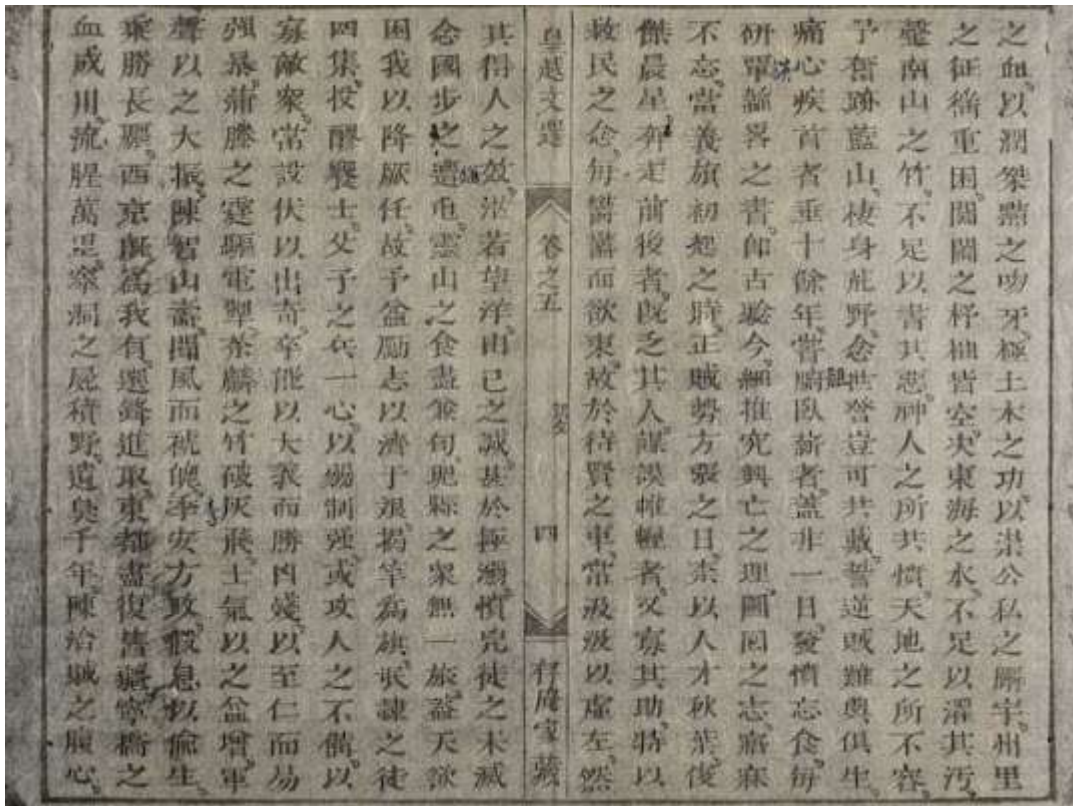 之血以潤桀黠之吻牙極土木之功以崇公私之廨宇州里
之征徭重困閭閻之杼柚皆空决東海之水不足以濯其汚
罄南山之竹不足以書其惡神人之所共憤天地之所不容
予奮跡藍山棲身荒野念世讐豈可共戴誓逆賊難與俱生
痛心疾首者垂十餘年嘗膽臥薪者蓋非一日發憤忘食每
研覃韜畧之書卽古驗今細推究興亡之理圖回之志寤寐
不忘當義旗初起之時正賊勢方張之日柰以人才秋葉俊
傑晨星奔走前後者旣乏其人謀謨帷幄者又寡其助特以
救民之念每鬱鬱而欲東故於待賢之車常汲汲以虛左然
皇越文選 卷之五 四 存庵家藏
其得人之效茫若望洋由己之誠甚於拯溺憤兇徒之未滅
念國步之遭屯靈山之食盡兼旬瑰縣之衆無一旅蓋天欲
困我以降厥任故予益勵志以濟于艱揭竿為旗氓隸之徒
四集投醪饗士父子之兵一心以弱制强或攻人之不備以
寡敵衆常設伏以出奇卒能以大義而勝凶殘以至仁而易
强暴蒲藤之霆驅電掣茶麟之竹破灰飛士氣以之益增軍
聲以之大振陳智山壽聞風而褫魄李安方政假息以偷生
乘勝長驅西京旣為我有選鋒進取東都盡復舊疆寧橋之
血成川流腥萬里窣洞之屍積野遺臭千年陳洽賊之腹心